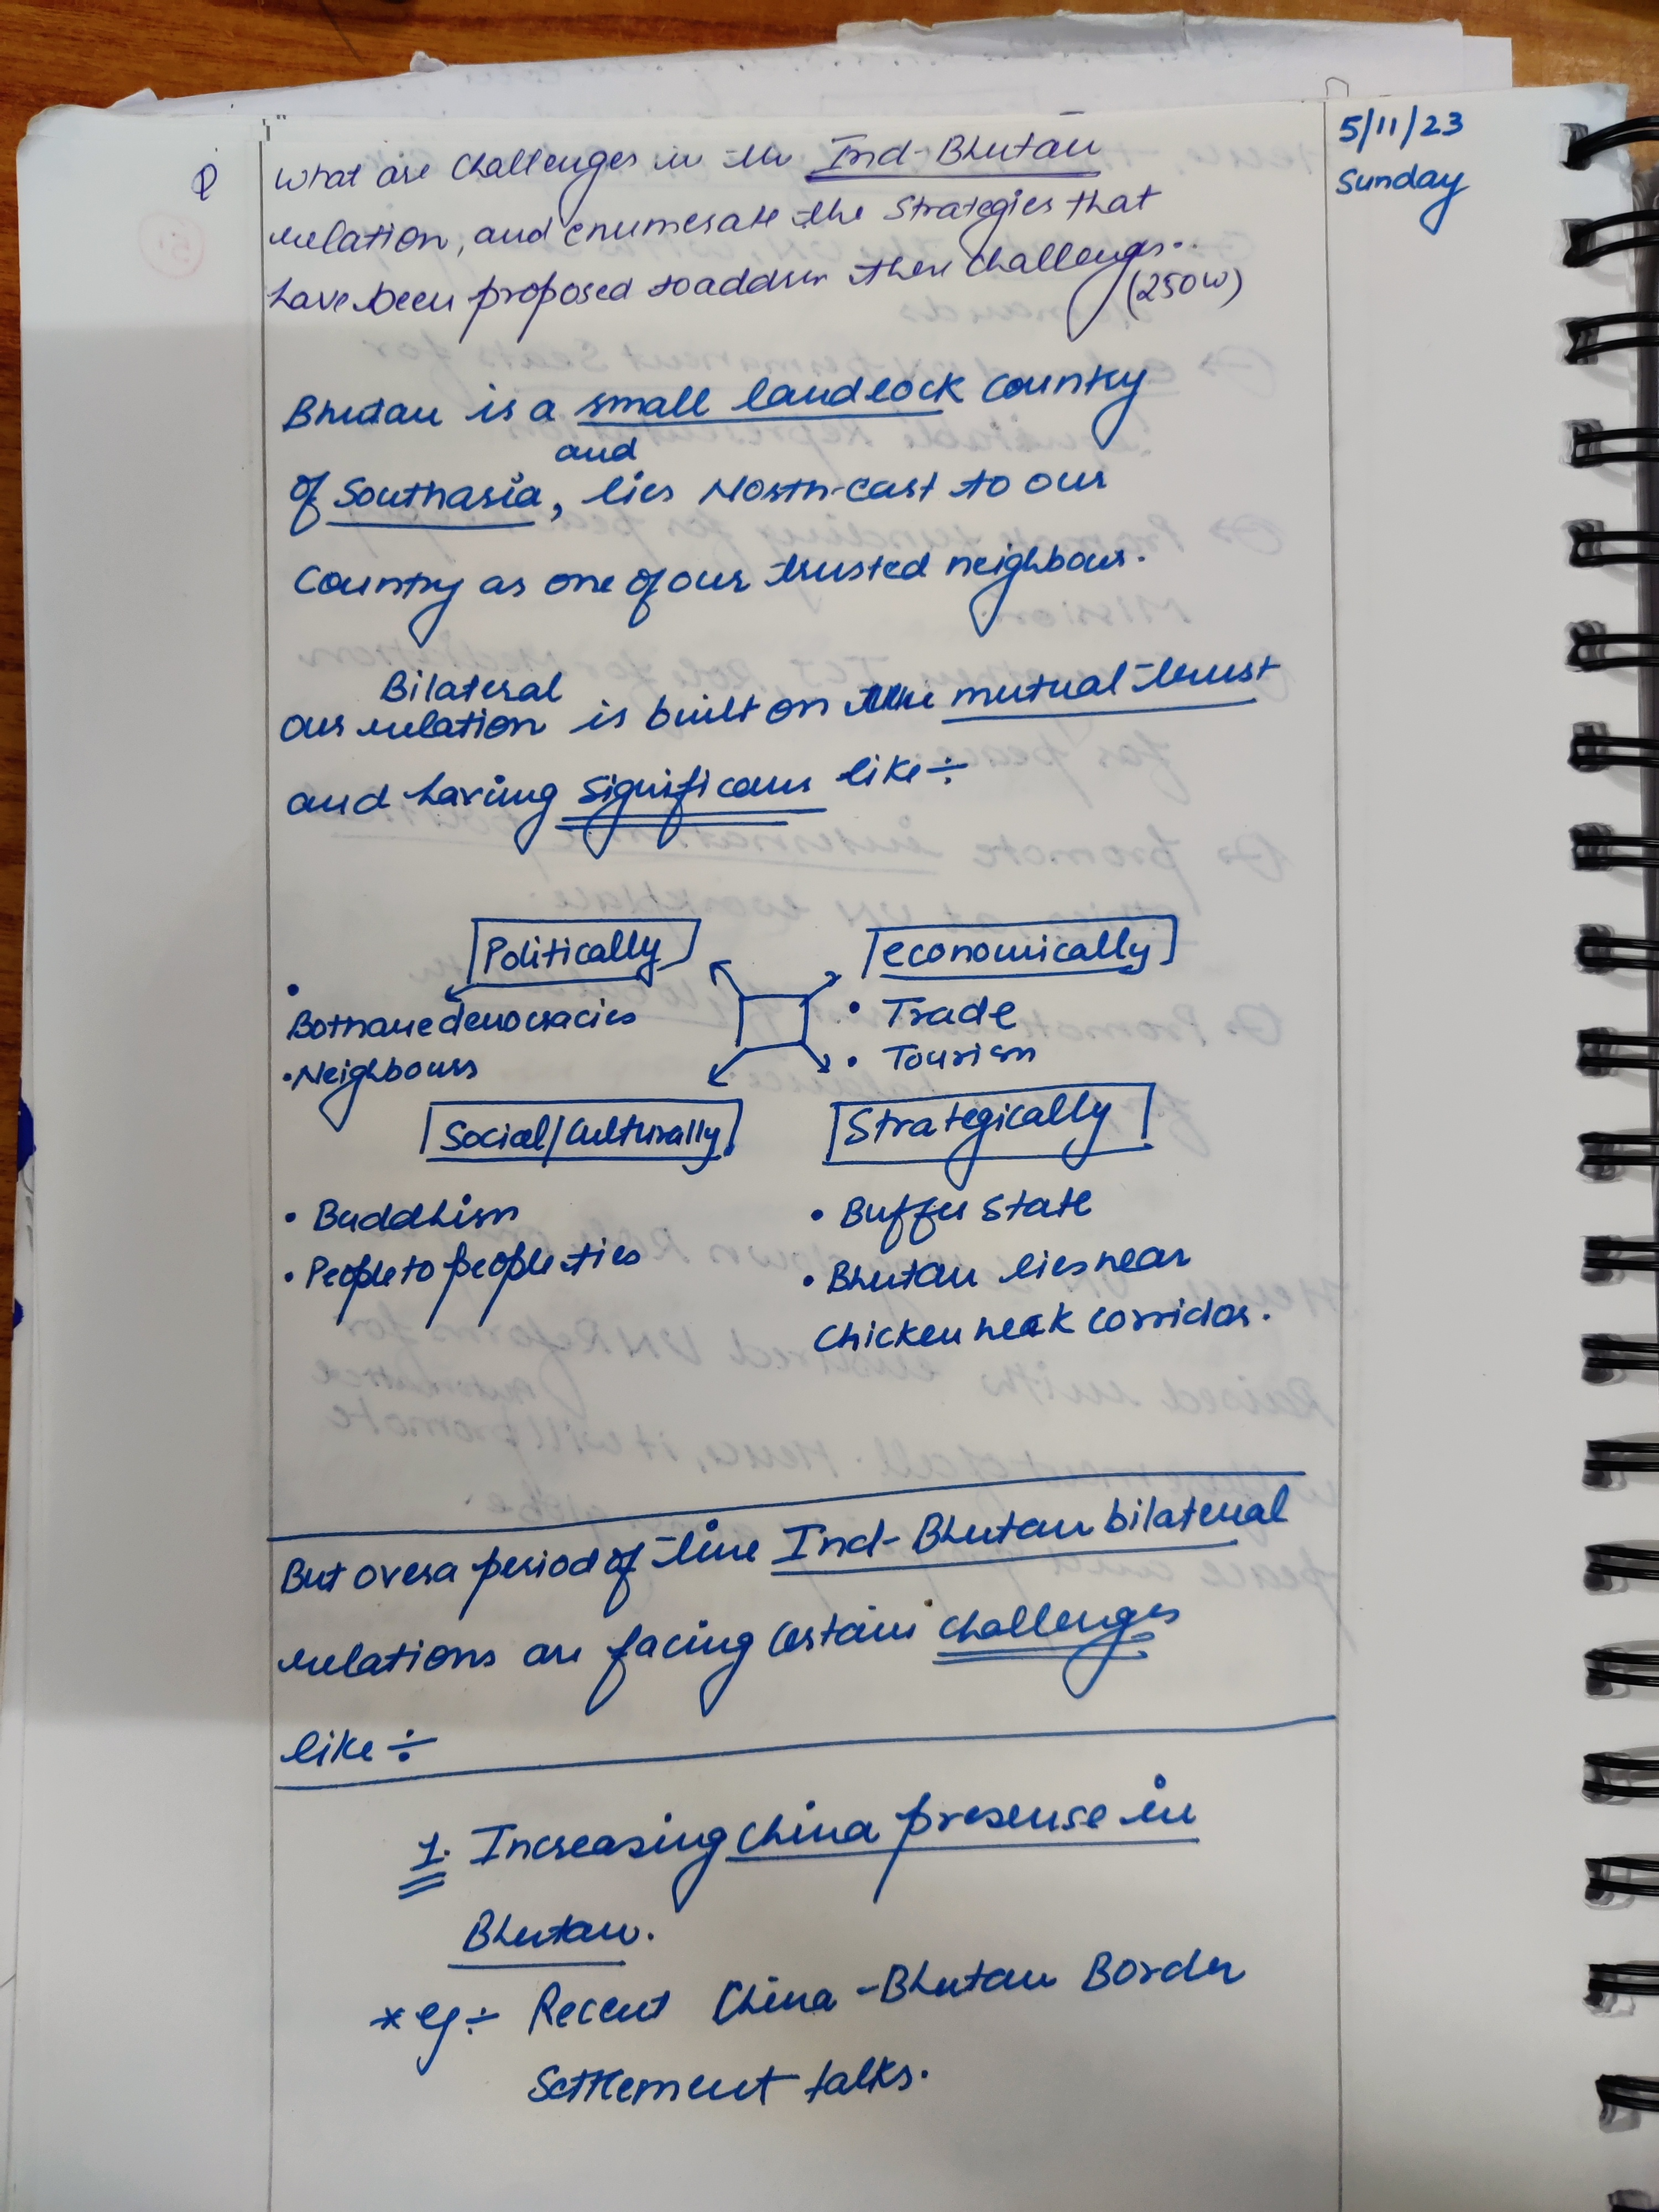 5/11/23
Sunday
Q What are Challenges in the Ind-Bhutan
relation, and enumerate the Strategies that
have been proposed to address these challenges..
(250w)
Bhutan is a small landlock country
and
of Southasia, lies North-east to our
Country as one of our trusted neighbour.
Bilateral
our relation is built on the mutual trust
and having significans like ÷
Politically
economically
• Both are democracies
• Neighbours
• Trade
• Tourism
Social/Culturally
Strategically
• Buddhism
• People to people ties
• Buffer state
• Bhutan lies near
Chicken neak corridor.
But over a period of time Ind-Bhutan bilaterial
relations are facing certain challenges
like ÷
1. Increasing China presense in
Bhutan.
* eg ÷ Recent China-Bhutan Border
Settlement talks.